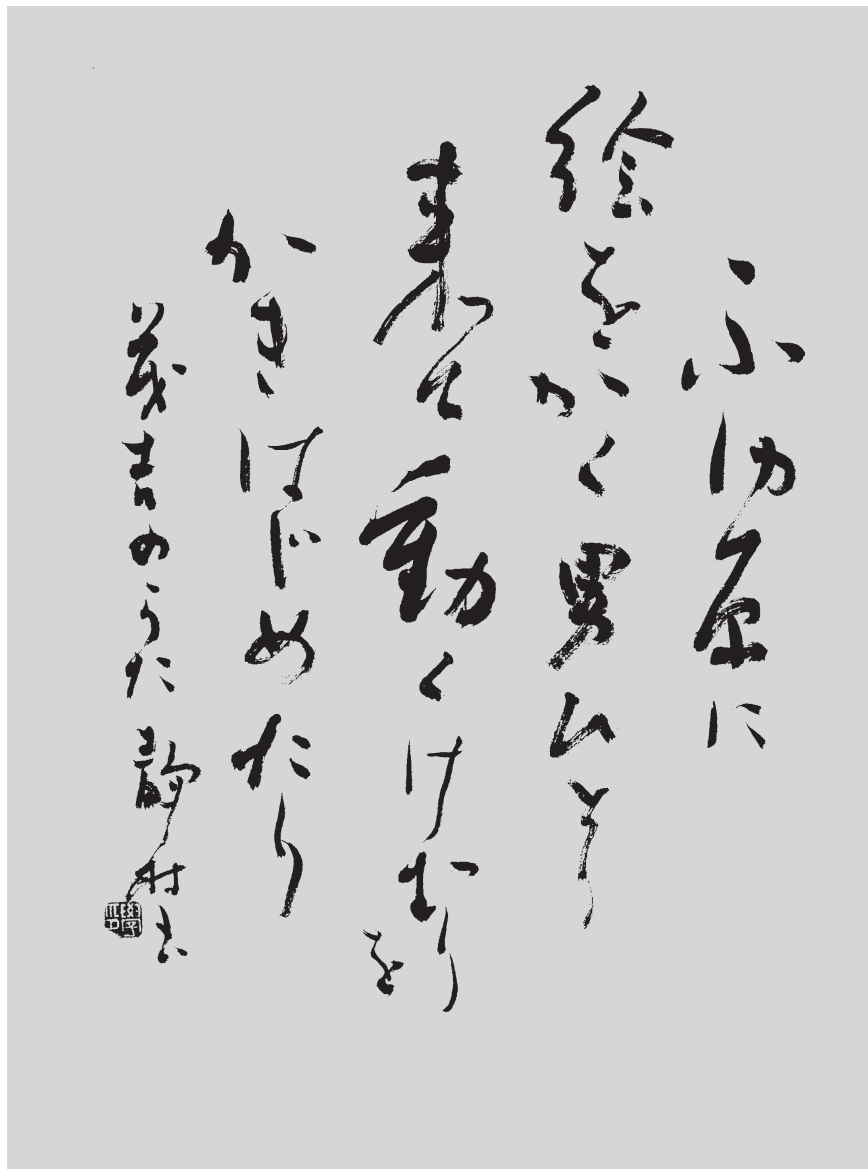 ふゆ原に
絵をかく男ひとり
来て動くけむりを
かきはじめたり
茂吉のうた 静村書